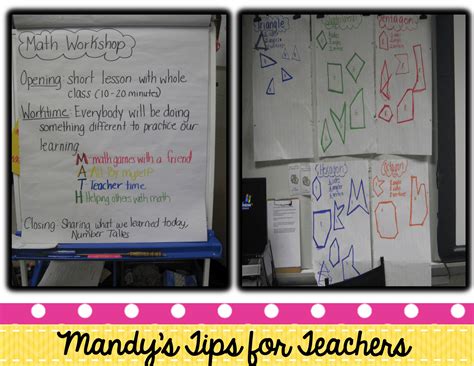 Math Workshop
Opening: short lesson with whole
class (10-20 minutes)
Worktime: Everybody will be doing
something different to practice our
learning
Math games with a friend
All by myself
Teacher time
Helping others with math
Closing: Sharing what we learned today,
Number Talks
Triangle
Pentagon
Hexagon
Octagon
Mandy's Tips for Teachers